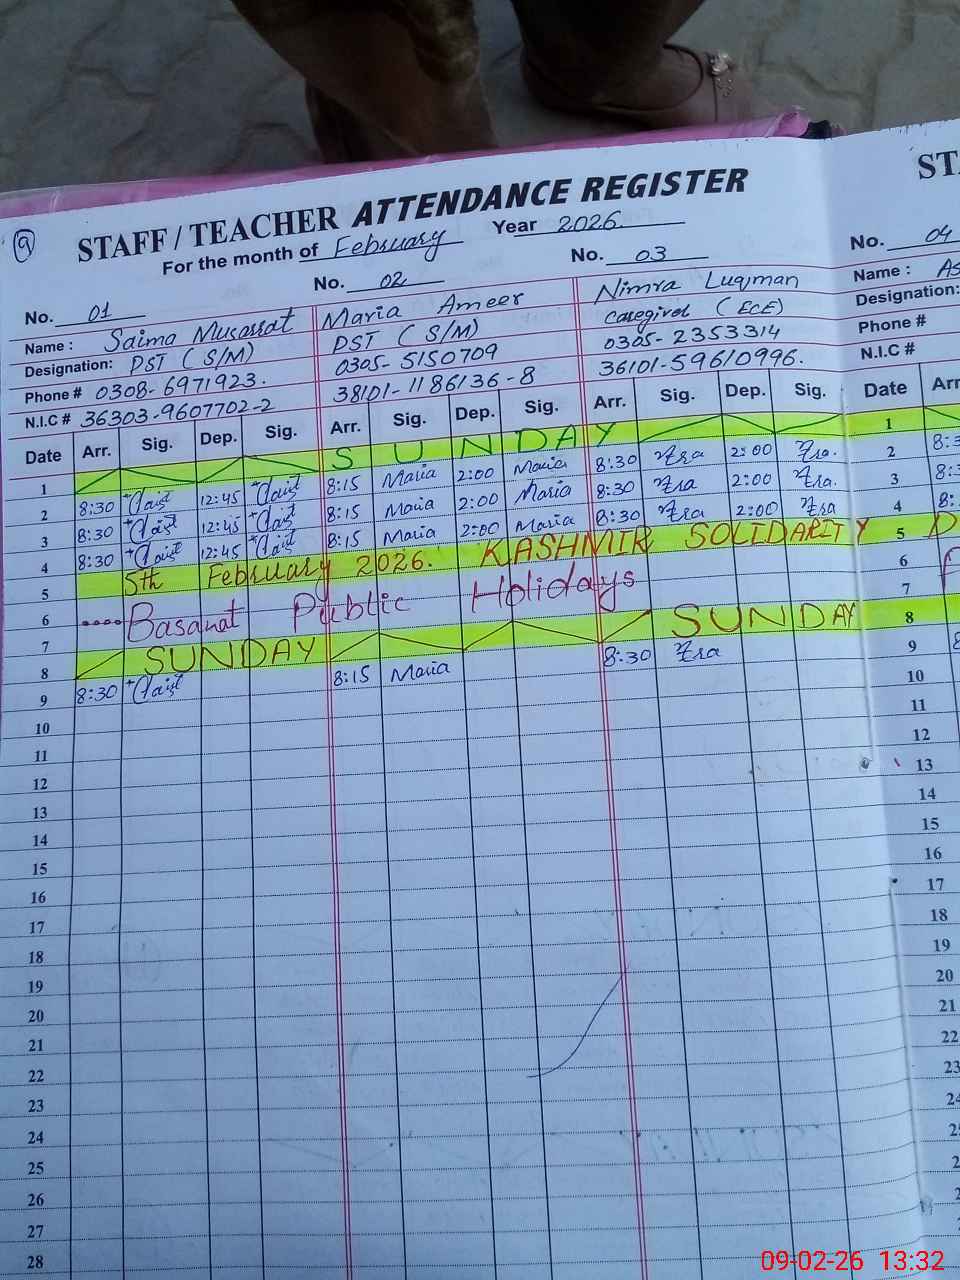 9
STAFF / TEACHER ATTENDANCE REGISTER
For the month of February Year 2026.
No. 01 No. 02 No. 03
Name : Saima Musarrat Maria Ameer Nimra Luqman
Designation: PST ( S/M) PST ( S/M) Caregivel ( ECE)
Phone # 0308-6971923. 0305-5150709 0305-2353314
N.I.C # 36303-9607702-2 38101-1186136-8 36101-59610996.
Date Arr. Sig. Dep. Sig. Arr. Sig. Dep. Sig. Arr. Sig. Dep. Sig.
1 SUNDAY
2 8:30 12:45 8:15 Maria 2:00 Maria 8:30 2:00
3 8:30 12:45 8:15 Maria 2:00 Maria 8:30 2:00
4 8:30 12:45 8:15 Maria 2:00 Maria 8:30 2:00
5 5th February 2026. KASHMIR SOLIDARITY
6 Basanat Public Holidays
7
8 SUNDAY SUNDAY
9 8:30 8:15 Maria 8:30
10
11
12
13
14
15
16
17
18
19
20
21
22
23
24
25
26
27
28
STA
No. 04
Name : As
Designation:
Phone #
N.I.C #
Date Arr
1
2 8:3
3 8:3
4 8:
5 D
6
7
8
9 8
10
11
12
13
14
15
16
17
18
19
20
21
22
23
24
25
2
2
2
09-02-26 13:32